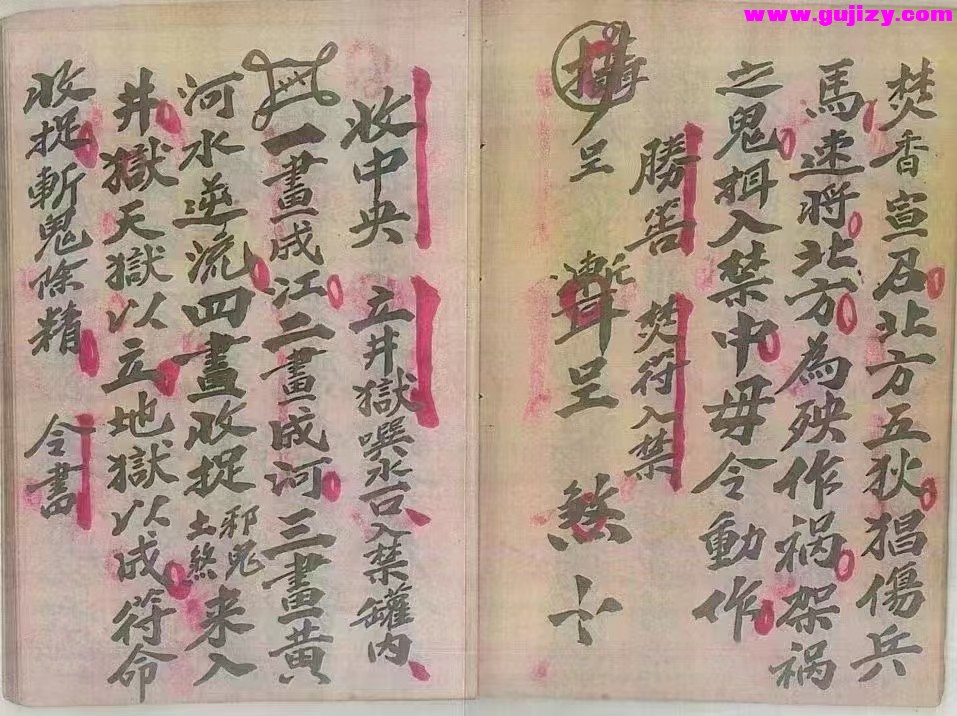 www.gujizy.com
焚香宣召北方五狄猖傷兵
馬速將北方為殃作祸架祸
之鬼楫入禁中毋令動作
勝筶 焚符入禁
煞
收中央 立井獄噀水一口入禁罐内
一畫成江二畫成河三畫黄
河水逆流四畫收捉邪鬼土煞来入
井獄天獄以立地獄以成符命
收捉斬鬼除精 令書